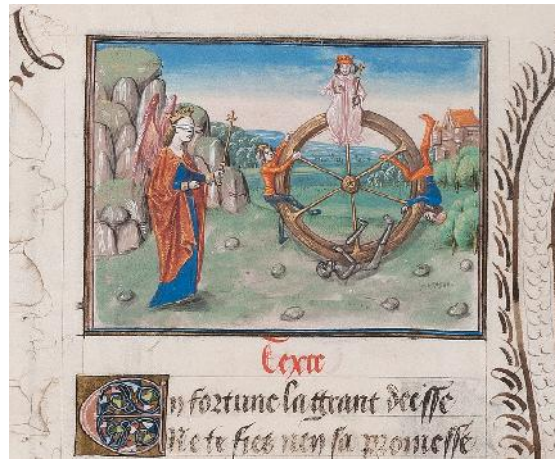 Texte
En fortune la grant deesse
Ne te fies nen sa promesse